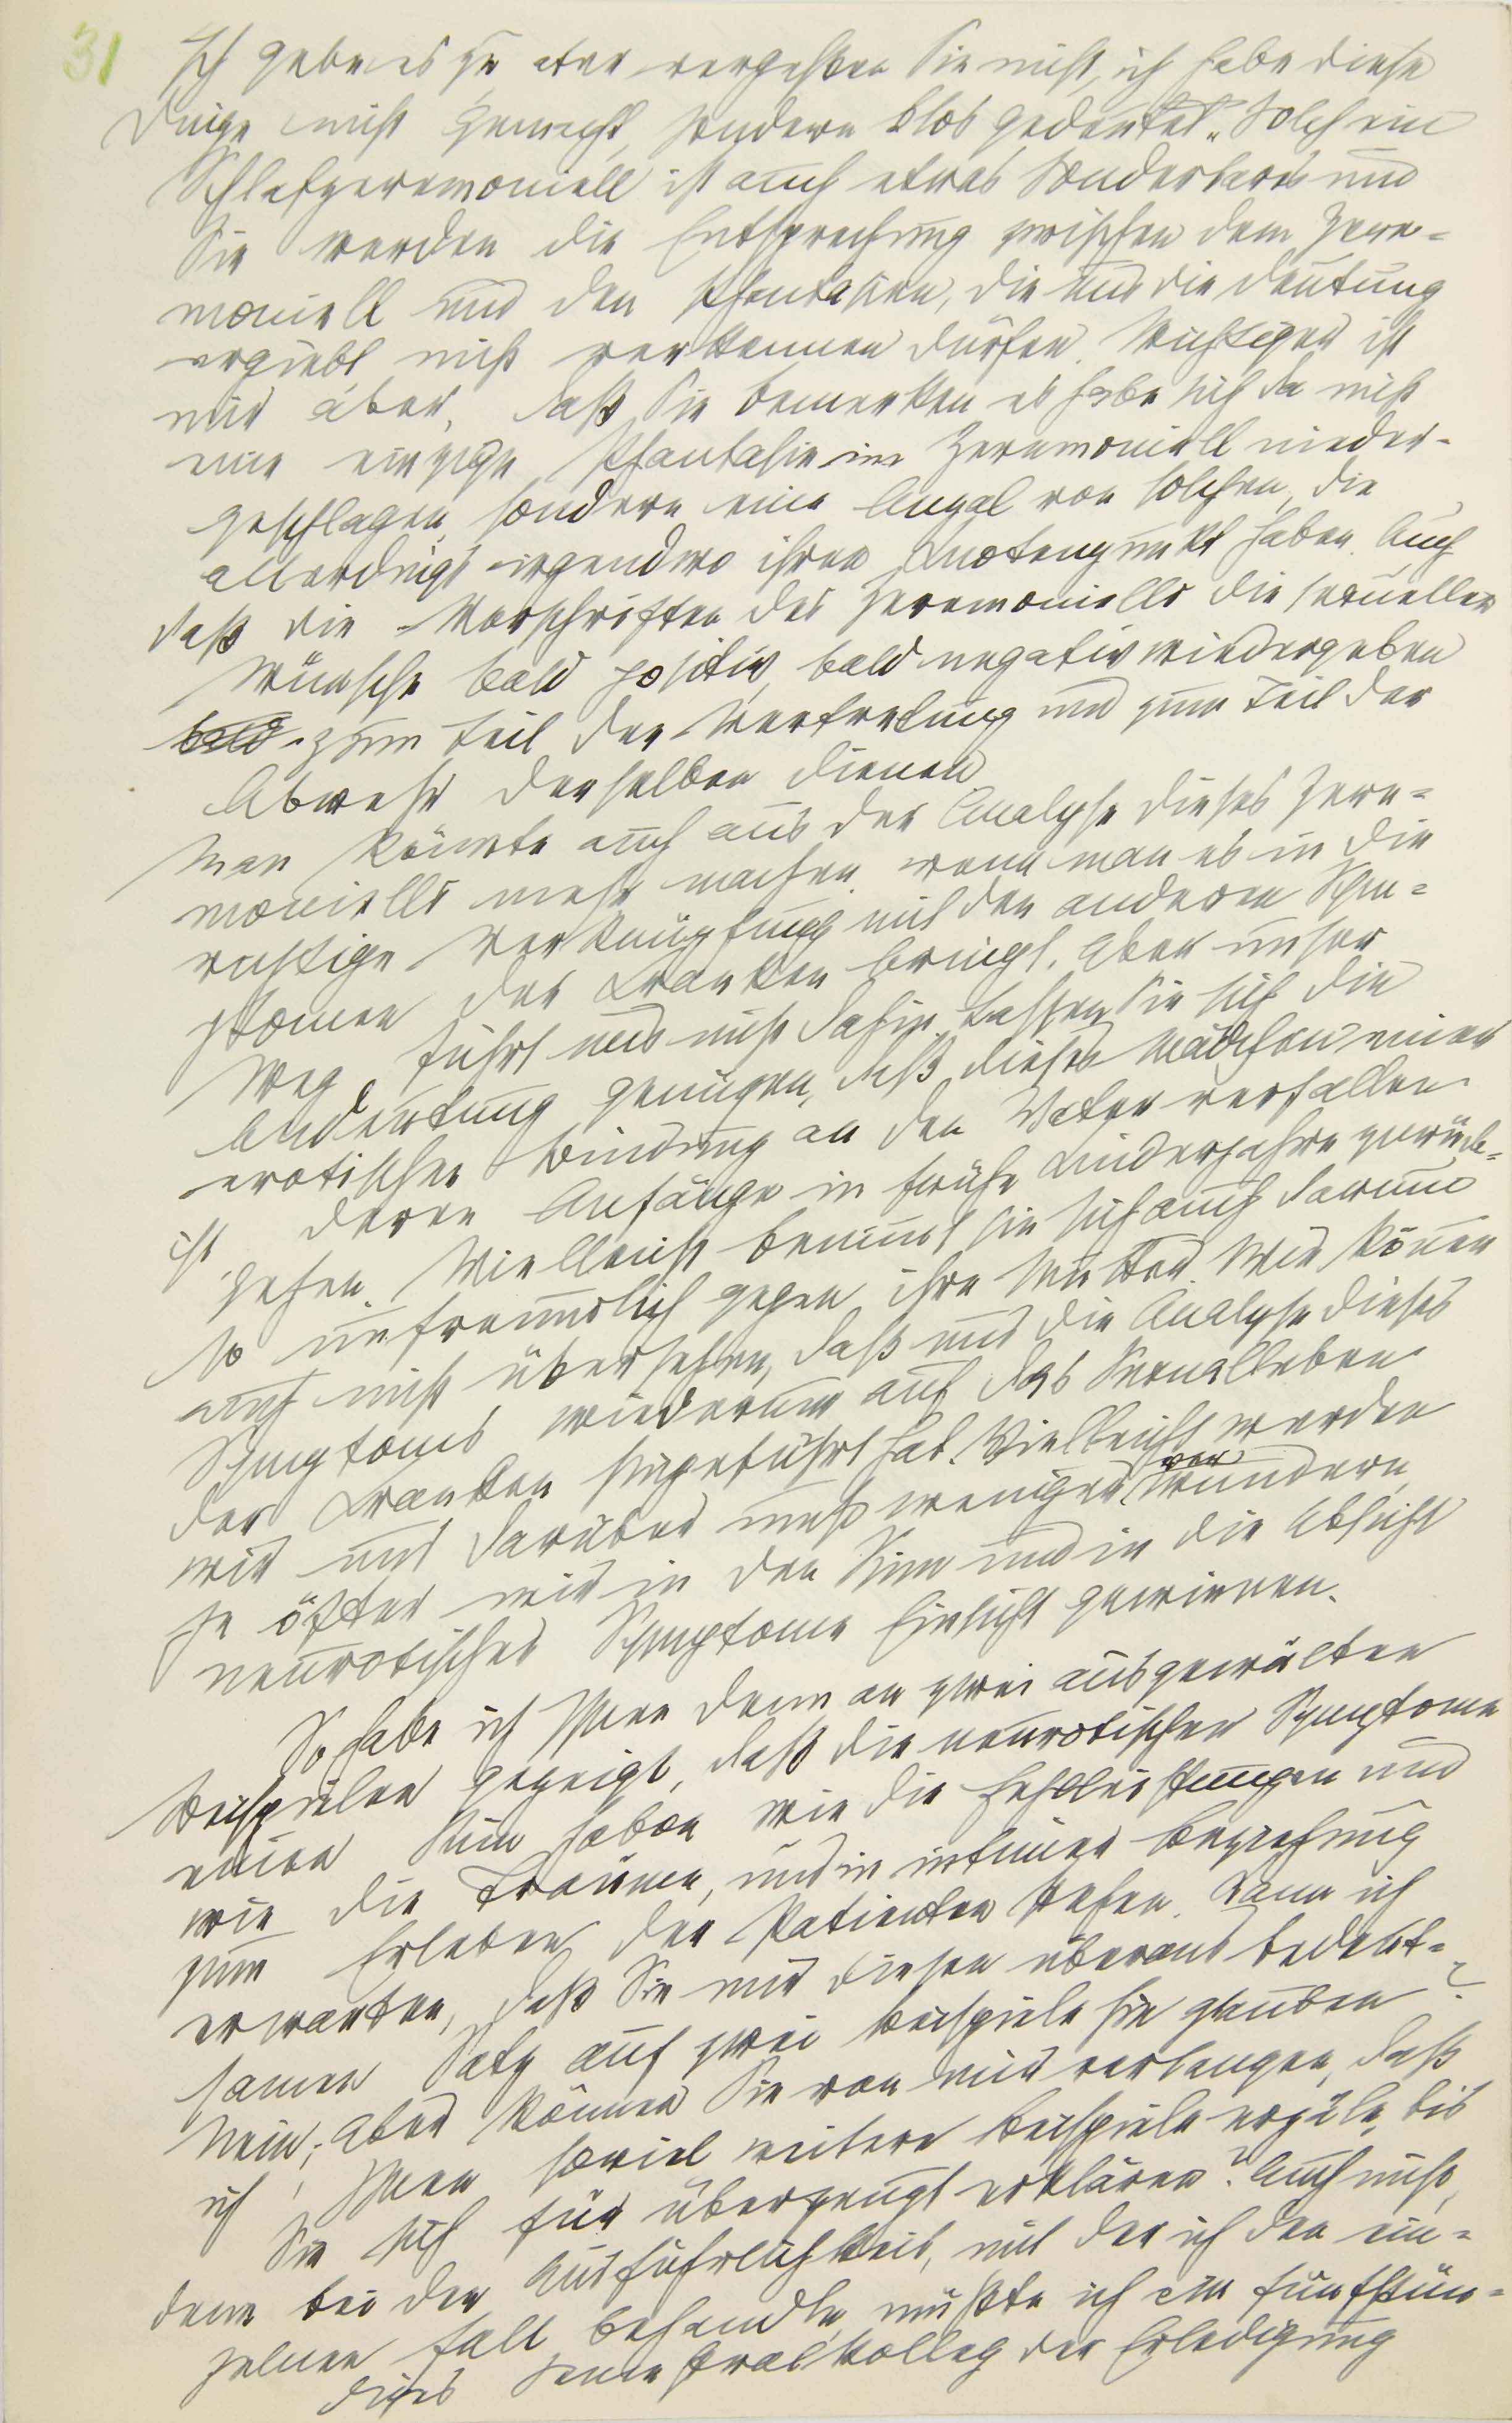 31
Ich gebe es zu, aber vergessen Sie nicht, ich habe diese
Dinge nicht gemacht, sondern blos gedeutet. Solch ein
Schlafzeremoniell ist auch etwas Sonderbares und
Sie werden die Entsprechung zwischen dem Zere-
moniell und den Phantasien, die uns die Deutung
ergiebt, nicht verkennen dürfen. Wichtiger ist
mir aber, daß Sie bemerken es habe sich da nicht
eine einzige Phantasie im Zeremoniell nieder-
geschlagen, sondern eine Anzal von solchen, die
allerdings irgendwo ihren Knotenpunkt haben. Auch
daß die Vorschriften des Zeremoniells die sexuellen
Wünsche bald positiv, bald negativ wiedergeben
bald zum Teil der Vertretung und zum Teil der
Abwehr derselben dienen
Man könnte auch aus der Analyse dieses Zere-
moniells mehr machen, wenn man es in die
richtige Verknüpfung mit den anderen Sym-
ptomen der Kranken bringt. Aber unser
Weg führt uns nicht dahin. Lassen Sie sich die
Andeutung genügen, daß dieses Mädchen einer
erotischen Bindung an den Vater verfallen
ist, deren Anfänge in frühe Kinderjahre zurück-
gehen. Vielleicht benimmt sie sich auch darum
so unfreundlich gegen ihre Mutter. Wir können
auch nicht übersehen, daß uns die Analyse dieses
Symptoms wiederum auf das Sexualleben
der Kranken hingeführt hat. Vielleicht werden
wir uns darüber umso weniger verwundern,
je öfter wir in den Sinn und in die Absicht
neurotischer Symptome Einsicht gewinnen.
So habe ich Ihnen denn an zwei ausgewälten
Beispielen gezeigt, daß die neurotischen Symptome
einen Sinn haben wie die Fehlleistungen und
wie die Träume, und in intimer Beziehung
zum Erleben der Patienten stehen. Kann ich
erwarten, daß Sie mir diesen überaus bedeut-
samen Satz auf zwei Beispiele hin glauben?
Nein; Aber können Sie von mir verlangen, daß
ich Ihnen soviel weitere Beispiele erzäle, bis
Sie sich für überzeugt erklären? Auch nicht,
denn bei der Ausführlichkeit, mit der ich den ein-
zelnen Fall behandle, müßte ich ein fünfstün-
diges Semestralkolleg der Erledigung